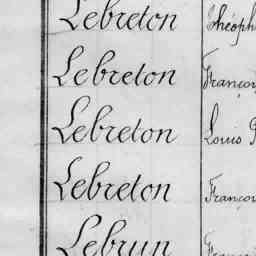 Lebreton Théoph
Lebreton Françoi
Lebreton Louis P
Lebreton Françoi
Lebrun Franço